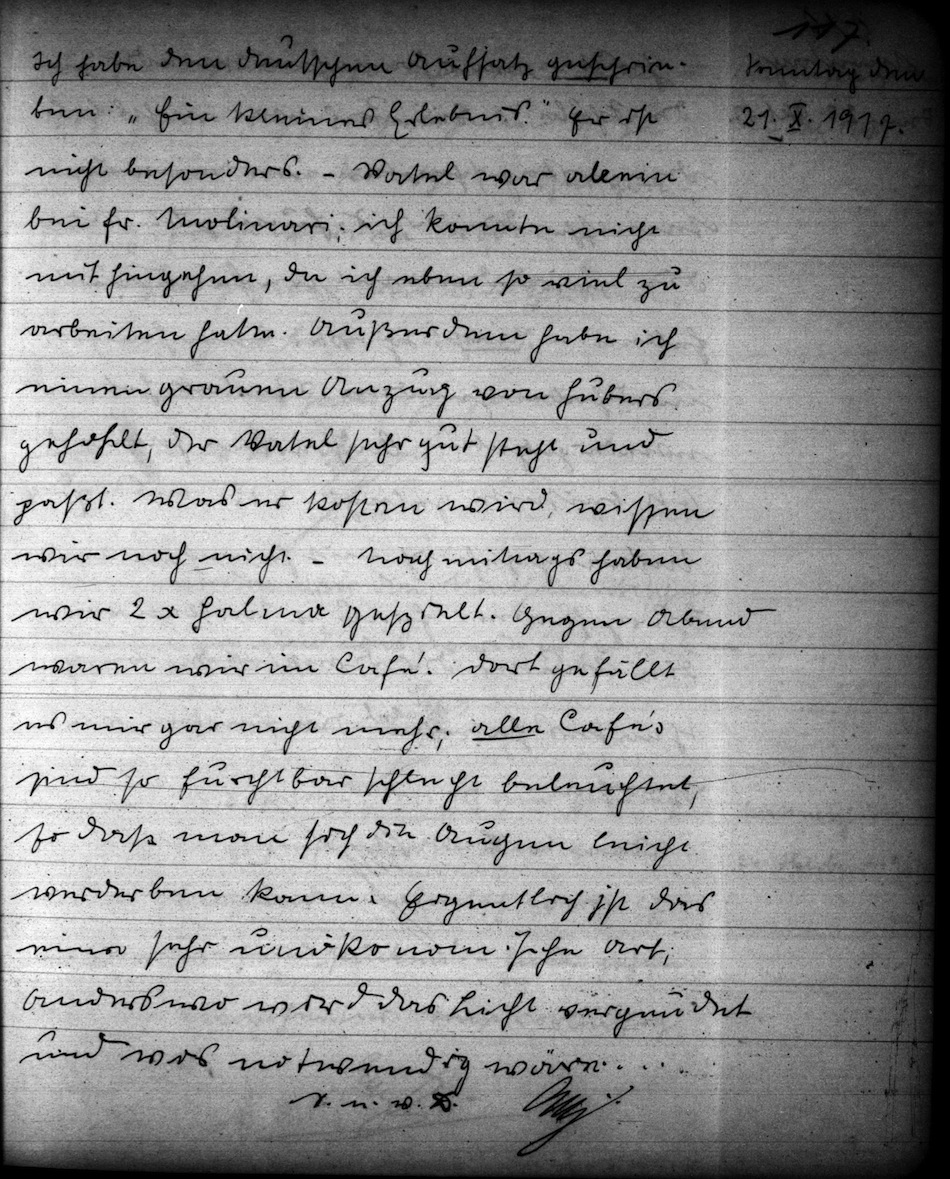 117.
Sonntag den
21. X. 1917.
Ich habe den deutschen Aufsatz geschrie-
ben: „Ein kleines Erlebnis." Er ist
nicht besonders. – Vatel war allein
bei Fr. Molinari; ich konnte nicht
mit hingehen, da ich eben so viel zu
arbeiten hatte. Außerdem habe ich
einen grauen Anzug von Hubers
gehohlt, der Vatel sehr gut steht und
paßt. Was er kosten wird, wissen
wir noch nicht. – Nachmittags haben
wir 2 x Halma gespielt. Gegen Abend
waren wir im Café. Dort gefällt
es mir gar nicht mehr; alle Café's
sind so furchtbar schlecht beleuchtet,
so daß man sich die Augen leicht
verderben kann. Eigentlich ist das
eine sehr unökonomische Art;
anderswo wird das Licht vergeudet
und wo's notwendig wäre. . . .
u. w.